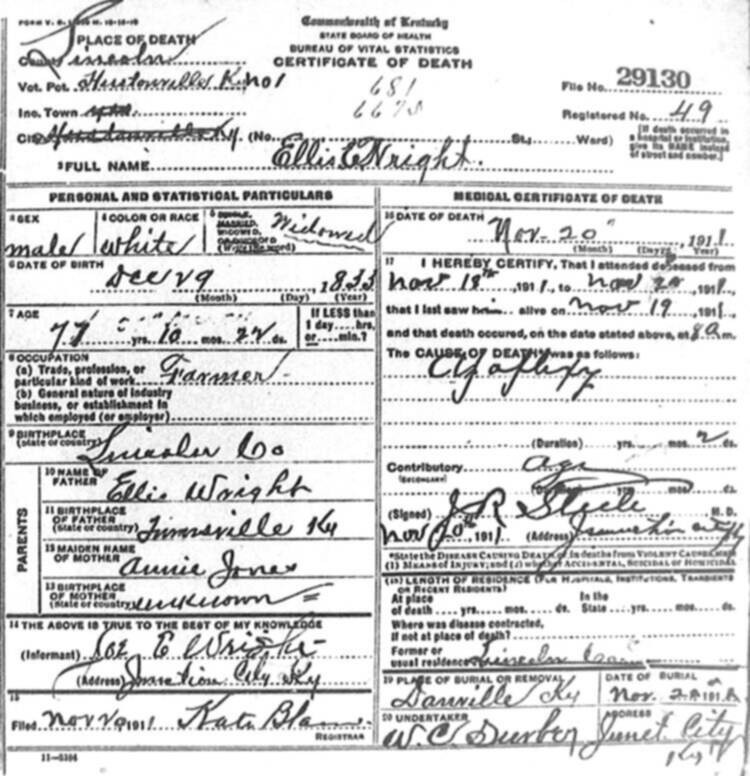 FORM V. S.
Commonwealth of Kentucky
STATE BOARD OF HEALTH
BUREAU OF VITAL STATISTICS
CERTIFICATE OF DEATH
PLACE OF DEATH
County Lincoln
Vot. Pct. Hustonville K No 1
681
667
File No. 29130
Inc. Town
Registered No. 49
City Ky (No. St.; Ward)
[If death occurred in a hospital or institution, give its NAME instead of street and number.]
2 FULL NAME Ellis E Wright.
PERSONAL AND STATISTICAL PARTICULARS
3 SEX
male
4 COLOR OR RACE
white
5 SINGLE, MARRIED, WIDOWED, OR DIVORCED (Write the word)
Widowed
6 DATE OF BIRTH
Dec 29, 1833
(Month) (Day) (Year)
7 AGE
77 yrs. 10 mos. 22 ds.
If LESS than 1 day... hrs. or... min.?
8 OCCUPATION
(a) Trade, profession, or particular kind of work Farmer
(b) General nature of industry business, or establishment in which employed (or employer)
9 BIRTHPLACE
(State or country) Lincoln Co
PARENTS
10 NAME OF FATHER Ellis Wright
11 BIRTHPLACE OF FATHER
(State or country) Ky
12 MAIDEN NAME OF MOTHER Annie Jones
13 BIRTHPLACE OF MOTHER
(State or country) unknown
14 THE ABOVE IS TRUE TO THE BEST OF MY KNOWLEDGE
(Informant) E Wright
(Address) Junction City Ky
15
Filed Nov 1911 Kate
REGISTRAR
11-5184
MEDICAL CERTIFICATE OF DEATH
16 DATE OF DEATH
Nov-20", 1911
(Month) (Day) (Year)
17 I HEREBY CERTIFY, That I attended deceased from
Nov 18th, 1911, to Nov 20, 1911,
that I last saw him alive on Nov 19, 1911,
and that death occured, on the date stated above, at 8 a m.
The CAUSE OF DEATH was as follows:
Apoplexy
(Duration) yrs. mos. 2 ds.
Contributory age
(SECONDARY)
(Duration) yrs. mos. ds.
(Signed) J. R. Steele M. D.
Nov 20th, 1911 (Address) Junction City Ky
*State the DISEASE CAUSING DEATH, or in deaths from VIOLENT CAUSES state
(1) MEANS OF INJURY; and (2) whether ACCIDENTAL, SUICIDAL or HOMICIDAL
(18) LENGTH OF RESIDENCE (FOR HOSPITALS, INSTITUTIONS, TRANSIENTS OR RECENT RESIDENTS)
At place of death ... yrs. ... mos. ... ds. In the State ... yrs. ... mos. ... ds.
Where was disease contracted, If not at place of death?
Former or usual residence Lincoln Co
19 PLACE OF BURIAL OR REMOVAL
Danville Ky
DATE OF BURIAL
Nov. 191
20 UNDERTAKER
W. C.
ADDRESS
Junct. City
Ky